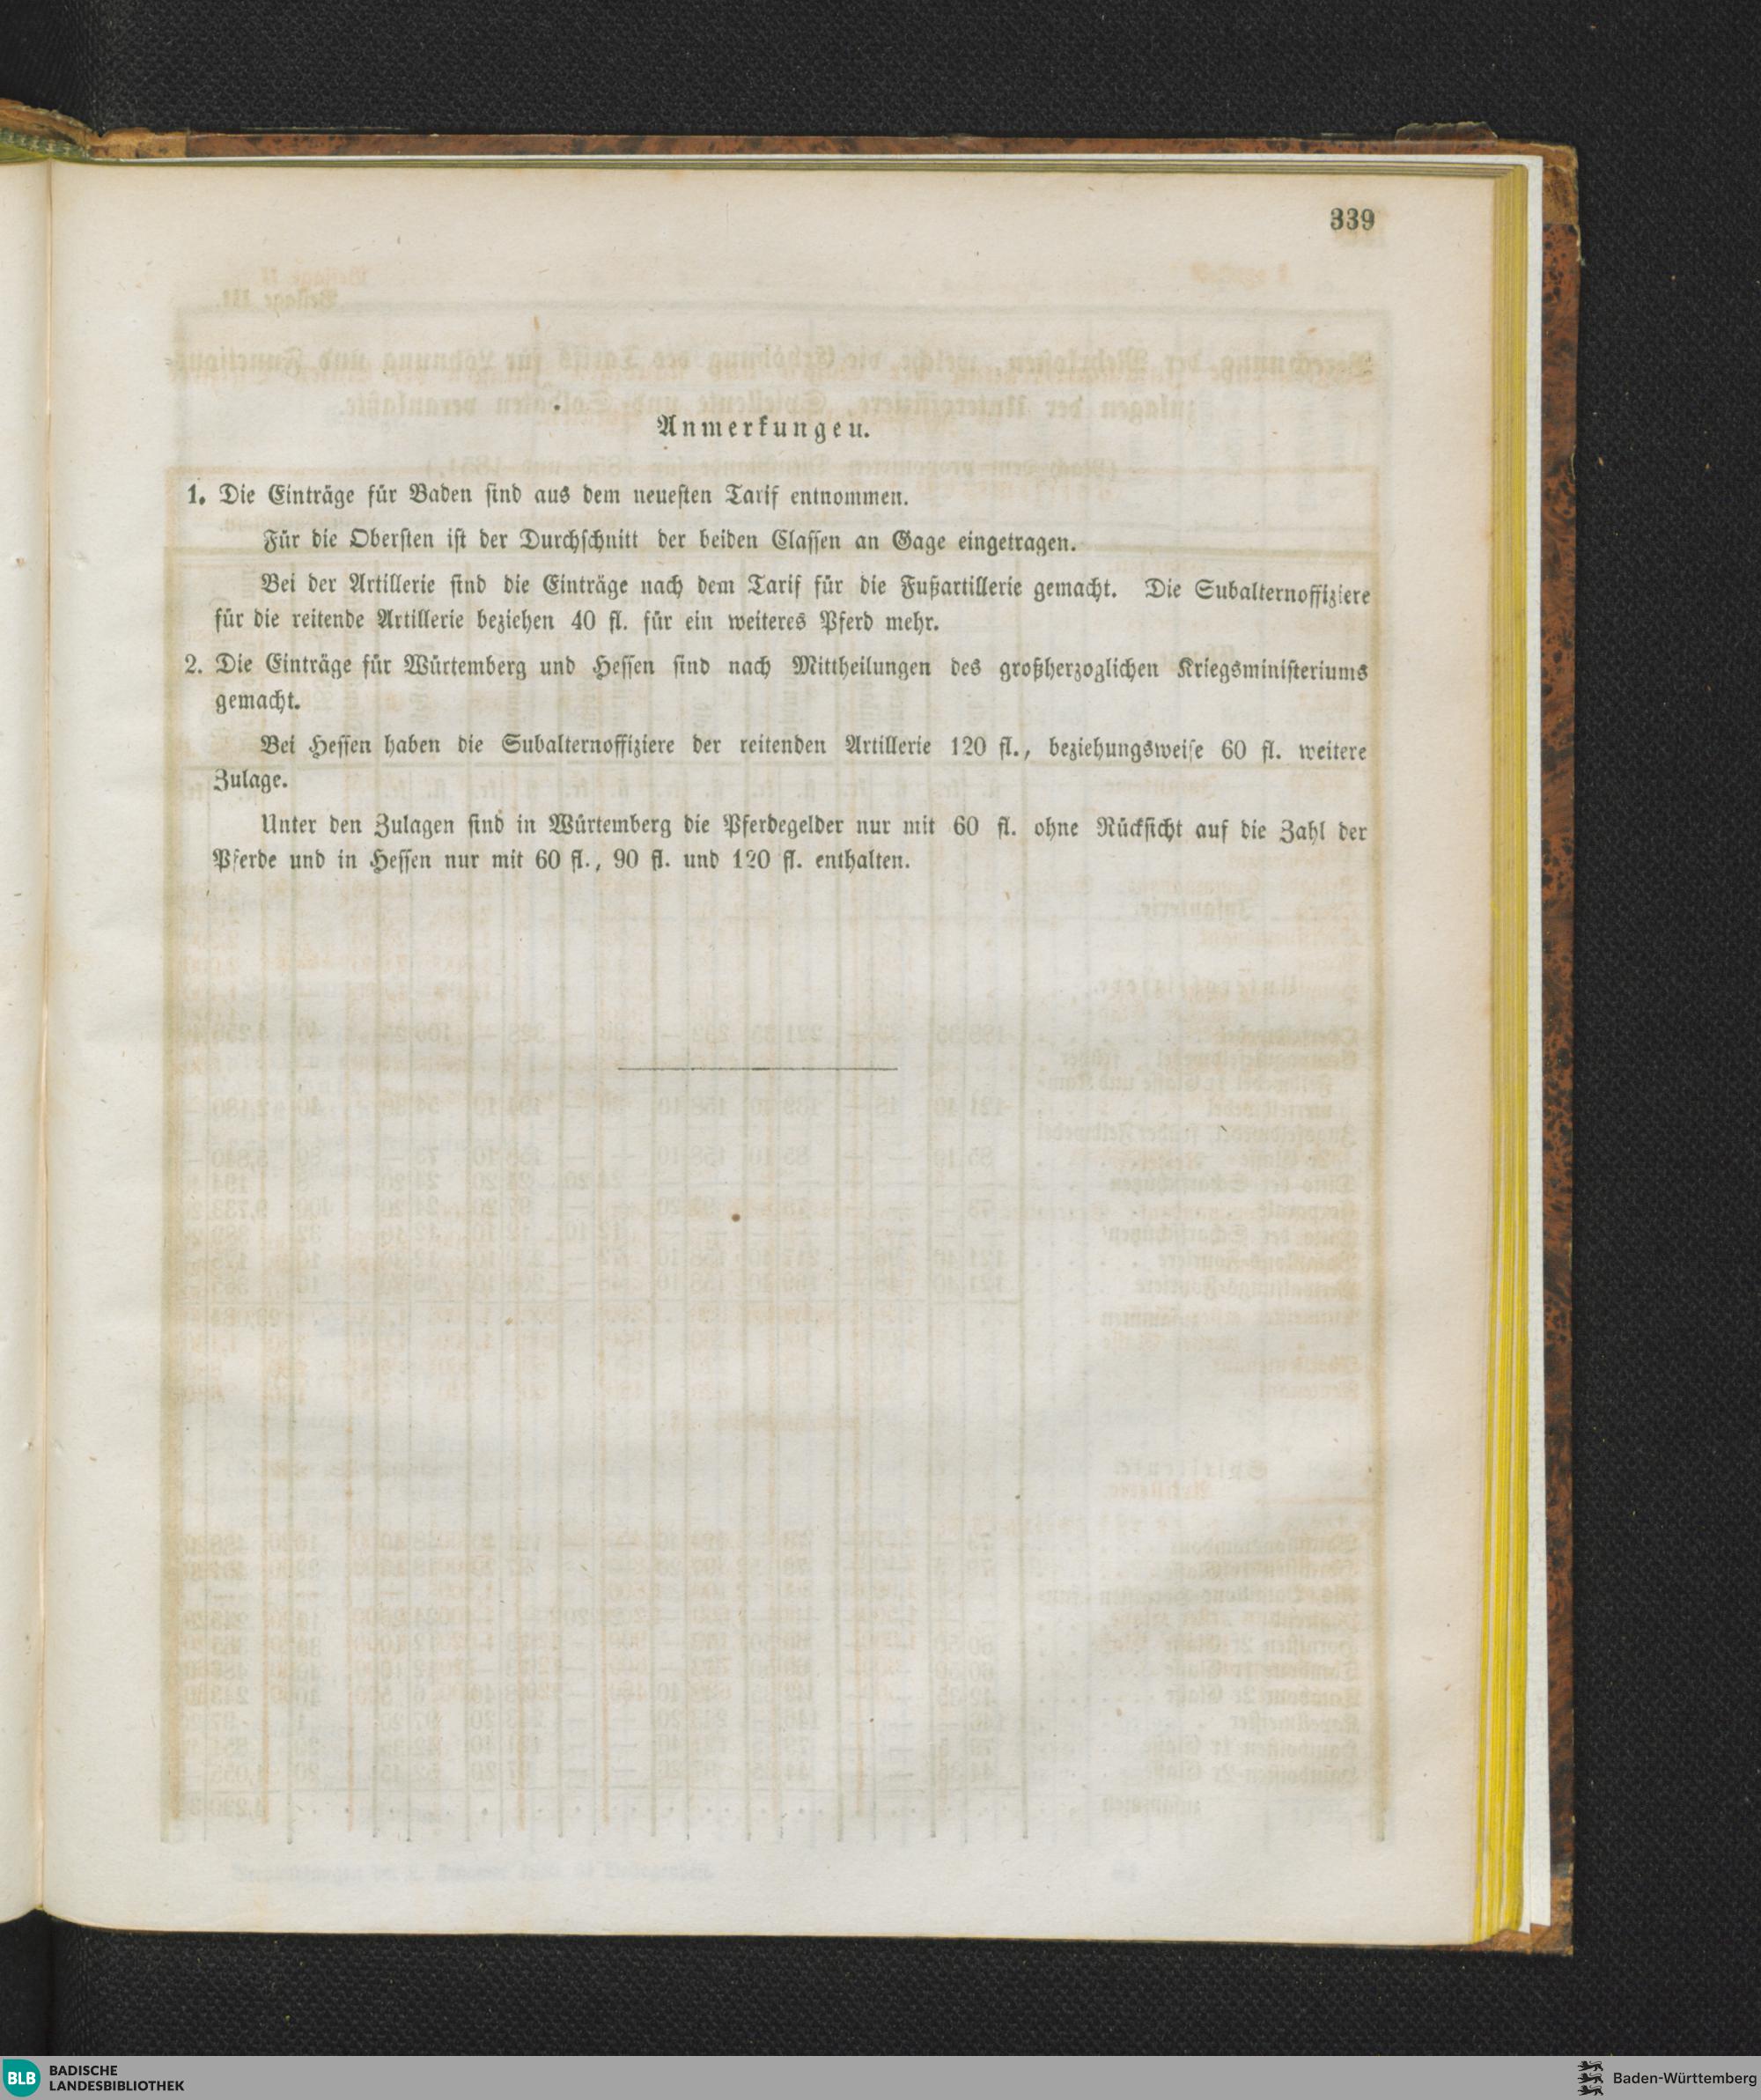 339
Anmerkungen.
1. Die Einträge für Baden sind aus dem neuesten Tarif entnommen.
Für die Obersten ist der Durchschnitt der beiden Classen an Gage eingetragen.
Bei der Artillerie sind die Einträge nach dem Tarif für die Fußartillerie gemacht. Die Subalternoffiziere
für die reitende Artillerie beziehen 40 fl. für ein weiteres Pferd mehr.
2. Die Einträge für Würtemberg und Hessen sind nach Mittheilungen des großherzoglichen Kriegsministeriums
gemacht.
Bei Hessen haben die Subalternoffiziere der reitenden Artillerie 120 fl., beziehungsweise 60 fl. weitere
Zulage.
Unter den Zulagen sind in Würtemberg die Pferdegelder nur mit 60 fl. ohne Rücksicht auf die Zahl der
Pferde und in Hessen nur mit 60 fl., 90 fl. und 120 fl. enthalten.
BLB BADISCHE
LANDESBIBLIOTHEK
Baden-Württemberg